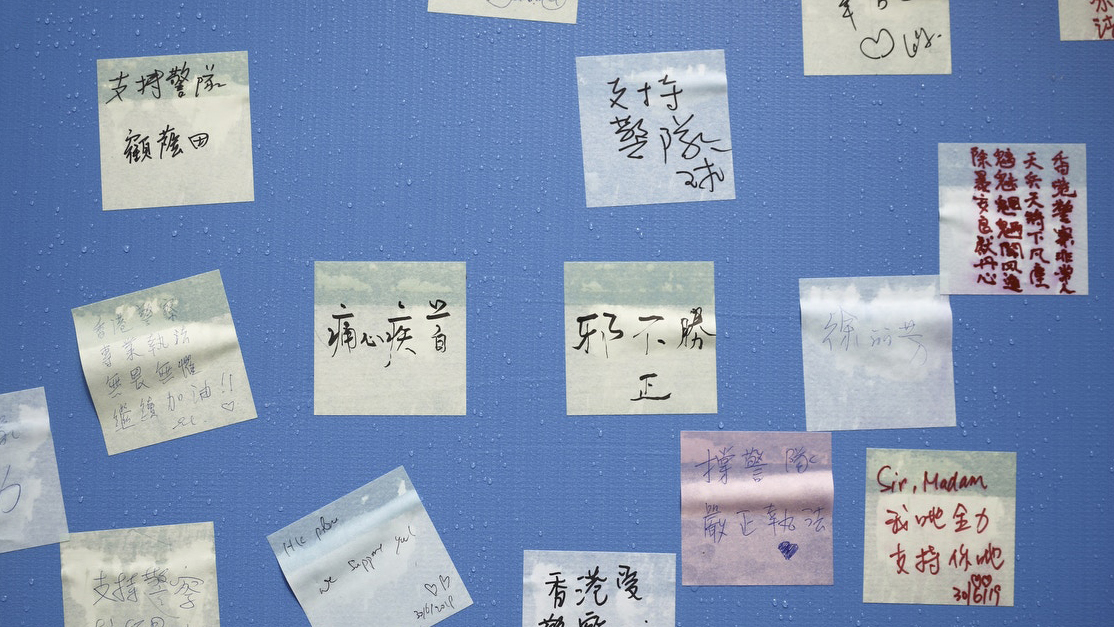 支持警隊
顧蔭田
支持
警隊
香港警察非常人
天兵天將下凡塵
魑魅魍魎聞風
除暴安良獻丹心
香港警察
專業執法
無畏無懼
繼續加油!!
痛心疾首
邪不勝
正
徐丽芳
撐警隊
嚴正執法
Sir, Madam
我哋全力
支持你哋
30/6/19
支持警察
HK police
we support you!
30/6/2019
香港